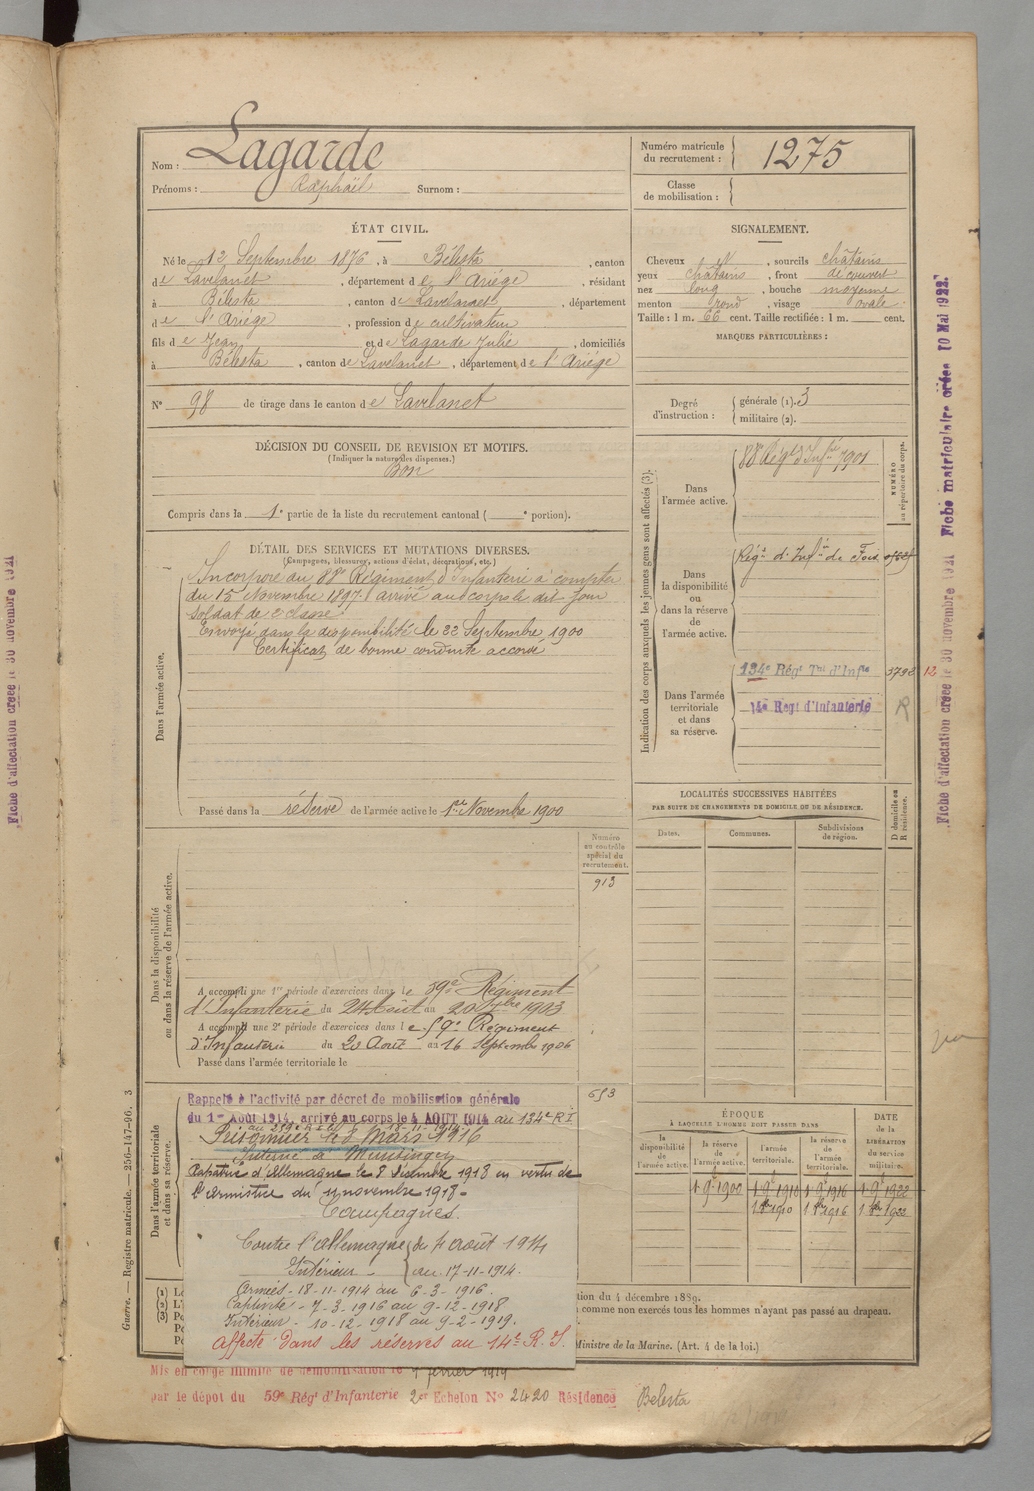 Nom : Lagarde
Prénoms : Raphaël Surnom :
Numéro matricule du recrutement : 1275
Classe de mobilisation :
ÉTAT CIVIL.
Né le 12 Septembre 1876, à Bélesta, canton
de Lavelanet, département de l'Ariège, résidant
à Bélesta, canton de Lavelanet, département
de l'Ariège, profession de cultivateur
fils de Jean et de Lagarde Julie, domiciliés
à Bélesta, canton de Lavelanet, département de l'Ariège
N° 98 de tirage dans le canton de Lavelanet
SIGNALEMENT.
Cheveux , sourcils châtains
yeux châtains, front découvert
nez long, bouche moyenne
menton rond, visage ovale
Taille : 1 m. 66 cent. Taille rectifiée : 1 m. cent.
MARQUES PARTICULIÈRES :
Degré d'instruction : générale (1). 3
militaire (2).
DÉCISION DU CONSEIL DE REVISION ET MOTIFS.
(Indiquer la nature des dispenses.)
Bon
Compris dans la 1e partie de la liste du recrutement cantonal ( e portion).
DÉTAIL DES SERVICES ET MUTATIONS DIVERSES.
(Campagnes, blessures, actions d'éclat, décorations, etc.)
Dans l'armée active.
Incorporé au 88e Régiment d'Infanterie à compter
du 15 Novembre 1897 arrivé au corps le dit jour
soldat de 2e classe
Envoyé dans la disponibilité le 22 Septembre 1900
Certificat de bonne conduite accordé
Passé dans la réserve de l'armée active le 1er Novembre 1900
Indication des corps auxquels les jeunes gens sont affectés (3).
NUMÉRO au répertoire du corps.
Dans l'armée active.
88e Régt d'Infie 7901
Dans la disponibilité ou dans la réserve de l'armée active.
Régt d'Infie de Foix
Dans l'armée territoriale et dans sa réserve.
134e Régt Tal d'Infie 3793 12
14e Regt d'Infanterie R
LOCALITÉS SUCCESSIVES HABITÉES
PAR SUITE DE CHANGEMENTS DE DOMICILE OU DE RÉSIDENCE.
Dates. Communes. Subdivisions de région. D domicile ou R résidence.
Dans la disponibilité ou dans la réserve de l'armée active.
Numéro au contrôle spécial du recrutement.
913
A accompli une 1re période d'exercices dans le 59e Régiment
d'Infanterie du 24 Août au 20 7bre 1903
A accompli une 2e période d'exercices dans le 59e Régiment
d'Infanterie du 20 Août au 16 Septembre 1906
Passé dans l'armée territoriale le
Dans l'armée territoriale et dans sa réserve.
693
Rappelé à l'activité par décret de mobilisation générale
du 1er Août 1914, arrivé au corps le 4 AOUT 1914 au 134e RI
Prisonnier le 6 Mars 1916
Interné de Munsingen
Rapatrié d'Allemagne le 8 décembre 1918 en vertu de
l'armistice du 11 novembre 1918.
Campagnes.
Contre l'Allemagne du 4 août 1914
Intérieur au 17-11-1914.
Armées - 18-11-1914 au 6-3-1916.
Captivité - 7-3-1916 au 9-12-1918
Intérieur - 10-12-1918 au 9-2-1919.
Affecté dans les réserves au 14e R.I.
ÉPOQUE
À LAQUELLE L'HOMME DOIT PASSER DANS
la disponibilité de l'armée active. la réserve de l'armée active. l'armée territoriale. la réserve de l'armée territoriale.
DATE de la LIBÉRATION du service militaire.
1 9e 1900 1 9e 1910 1 9e 1916 1 9e 1922
1 8bre 1910 1 8bre 1916 1 8bre 1922
tion du 4 décembre 1889.
comme non exercés tous les hommes n'ayant pas passé au drapeau.
Ministre de la Marine. (Art. 4 de la loi.)
Mis en congé illimité de démobilisation le 9 février 1919
par le dépôt du 59e Régt d'Infanterie 2e Echelon N° 2420 Résidence Belesta
Guerre. — Registre matricule. — 256-147-96. 3
Fiche d'affectation créée le 30 novembre 1921
Fiche d'affectation créée le 30 novembre 1921 Fiche matriculaire créée 10 Mai 1922.